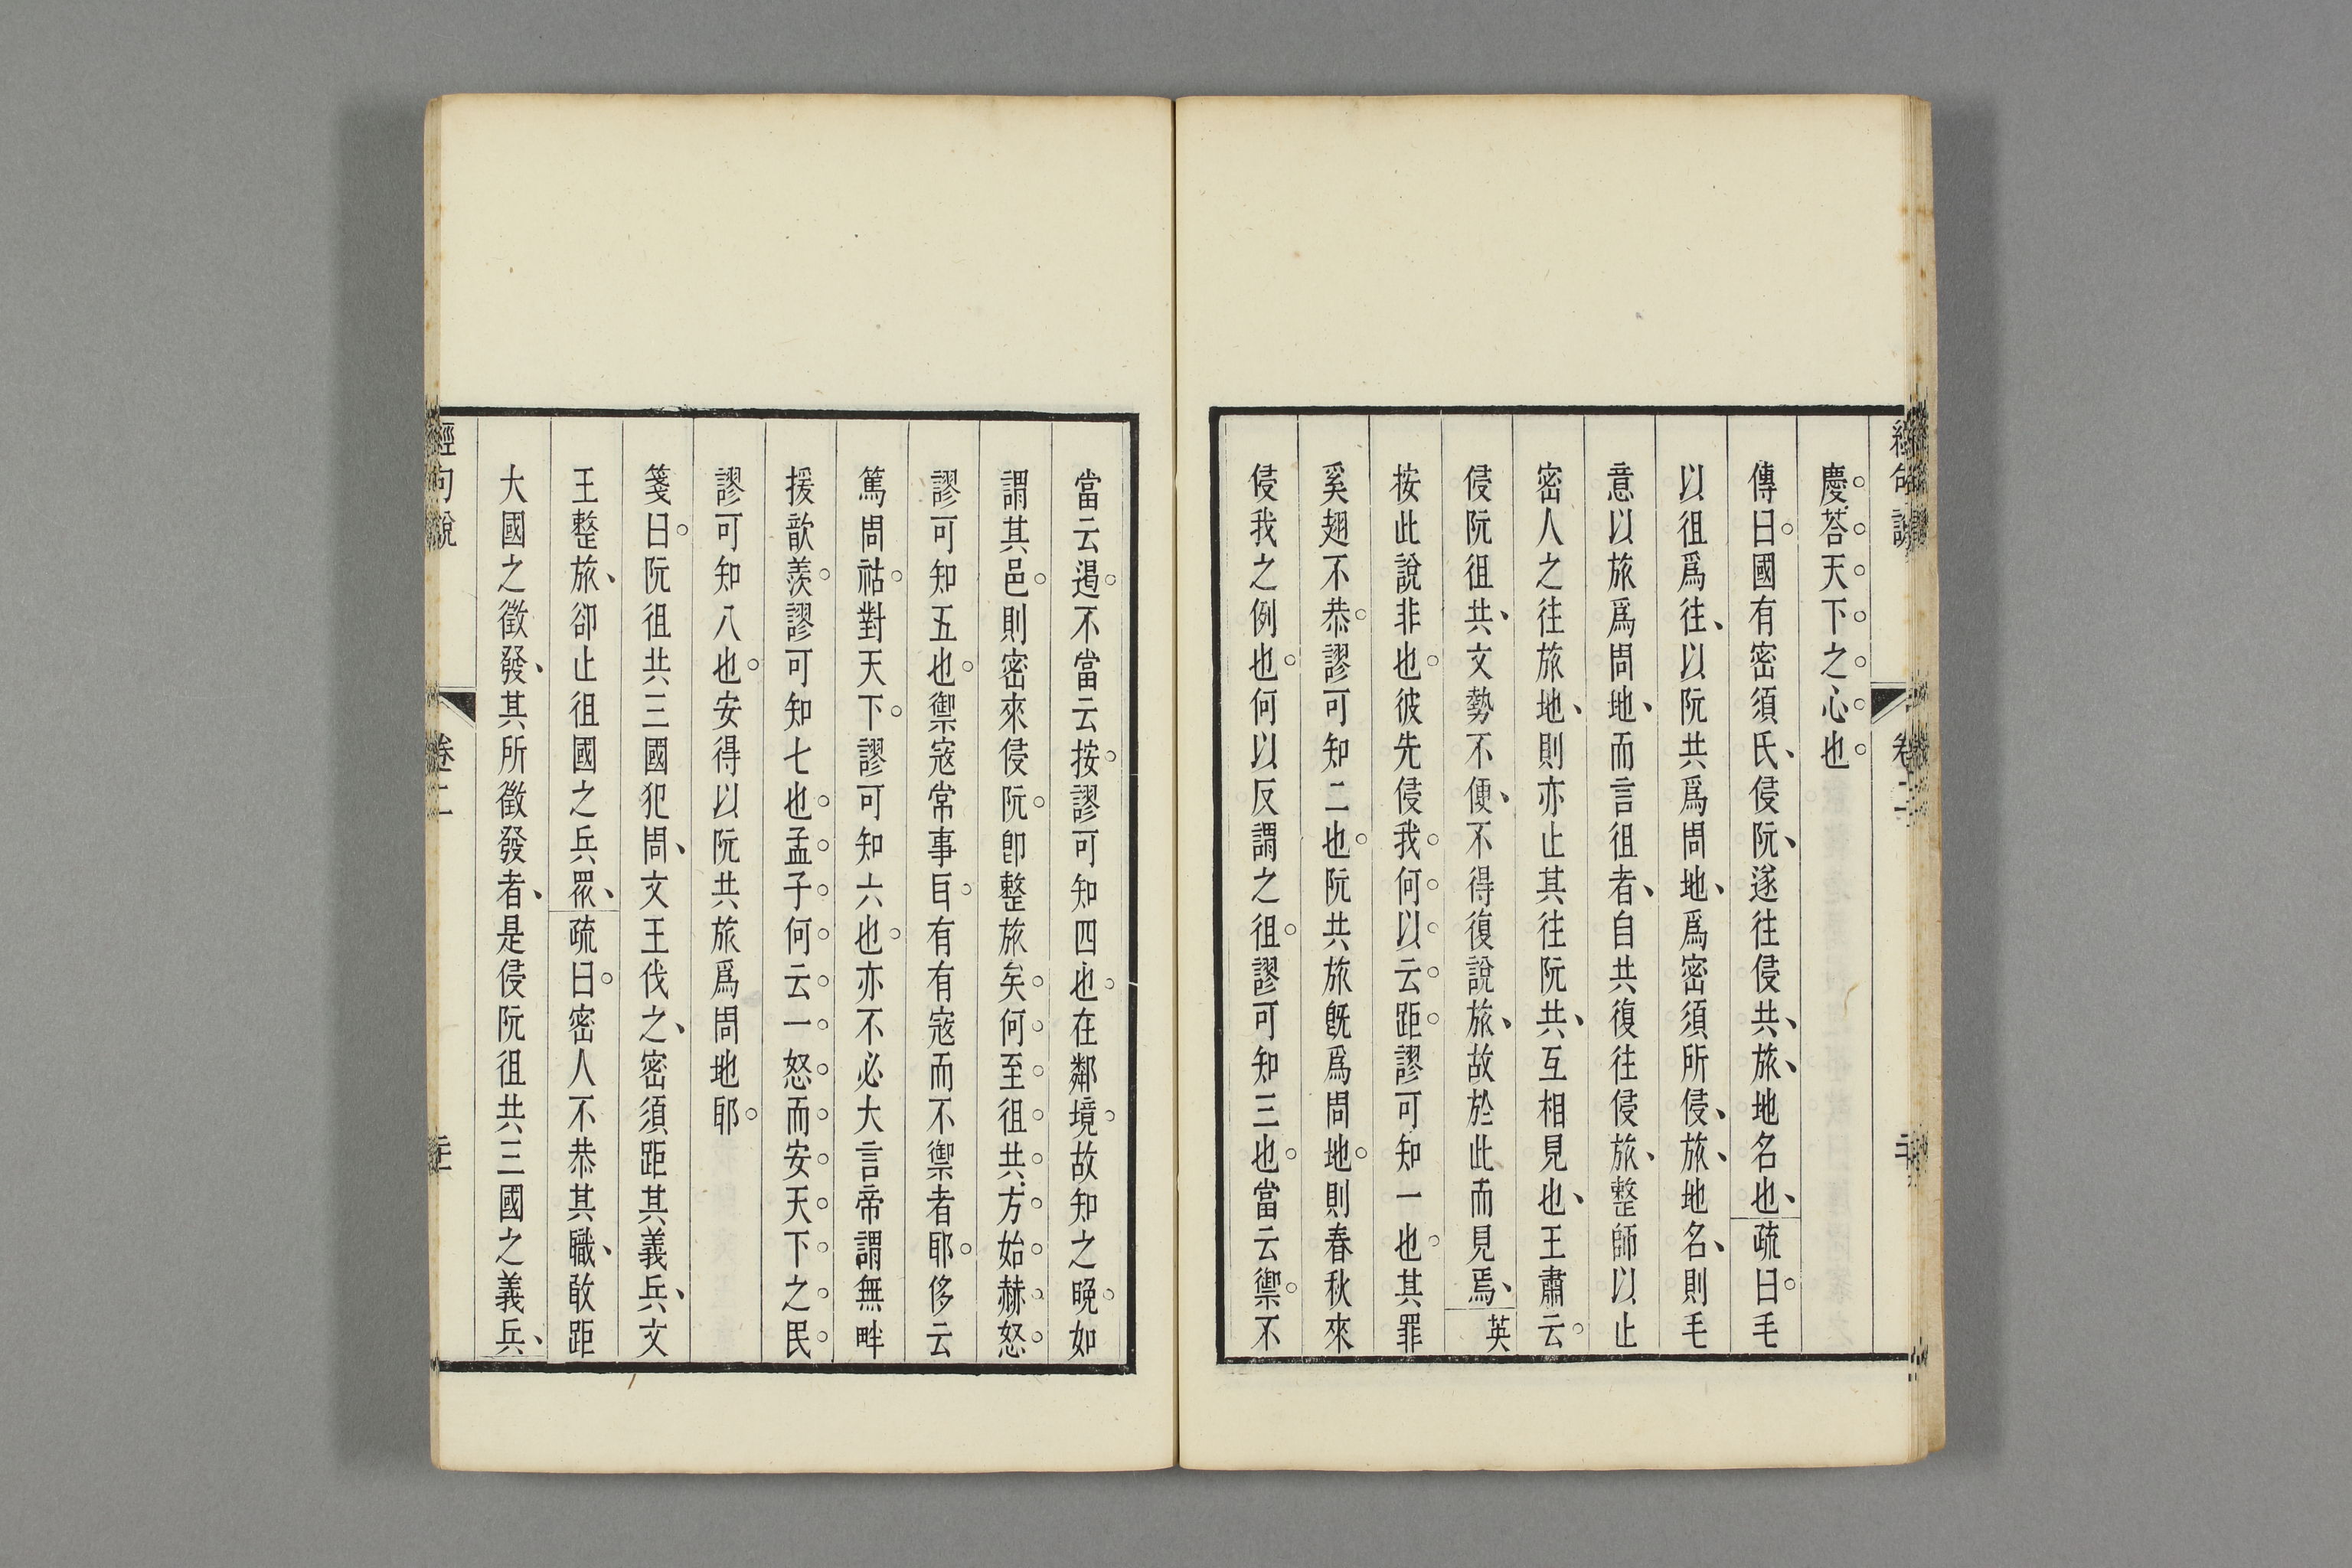 慶荅天下之心也
傳曰國有密須氏侵阮遂往侵共旅地名也疏曰毛
以徂爲往以阮共爲周地爲密須所侵旅地名則毛
意以旅爲周地而言徂者自共復往侵旅整師以止
密人之往旅地則亦止其往阮共互相見也王肅云
侵阮徂共文勢不便不得復說旅故於此而見焉英
按此說非也彼先侵我何以云距謬可知一也其罪
奚翅不恭謬可知二也阮共旅旣爲周地則春秋來
侵我之例也何以反謂之徂謬可知三也當云禦不
當云遏不當云按謬可知四也在鄰境故知之晚如
謂其邑則密來侵阮卽整旅矣何至徂共方始赫怒
謬可知五也禦寇常事耳有有寇而不禦者耶侈云
篤周祜對天下謬可知六也亦不必大言帝謂無畔
援歆羨謬可知七也孟子何云一怒而安天下之民
謬可知八也安得以阮共旅爲周地耶
箋曰阮徂共三國犯周文王伐之密須距其義兵文
王整旅卻止徂國之兵眾疏曰密人不恭其職敢距
大國之徵發其所徵發者是侵阮徂共三國之義兵
經句說 卷二